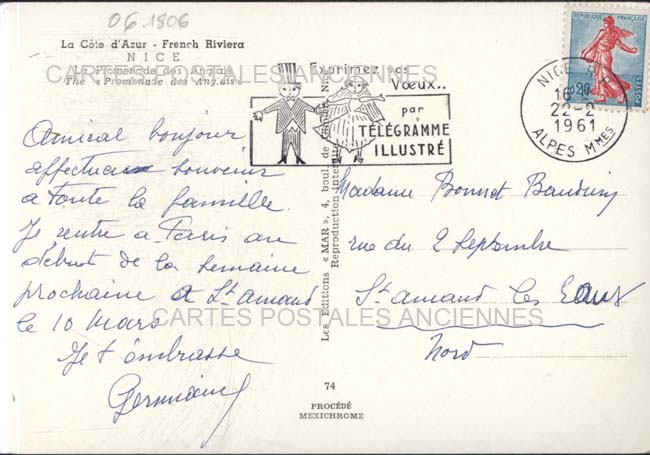 06 1806
La Côte d'Azur - French Riviera
NICE
La Promenade des Anglais
The « Promenade des Anglais »
CARTES POSTALES ANCIENNES
Amical bonjour
affectueux souvenir
à toute la famille.
Je rentre à Paris au
début de la semaine
prochaine à St Amand
le 10 Mars
Je t'embrasse
Germaine
Exprimez vos
Vœux..
par
TÉLÉGRAMME
ILLUSTRÉ
REPUBLIQUE FRANÇAISE
0,20
POSTES
NICE
16 H
22-2
1961
ALPES MMES
Les Editions « MAR », 4, boul. de
Reproduction interdite
Madame Bonnet
rue du 2 Septembre
St Amand les Eaux
Nord
CARTES POSTALES ANCIENNES
74
PROCÉDÉ
MEXICHROME